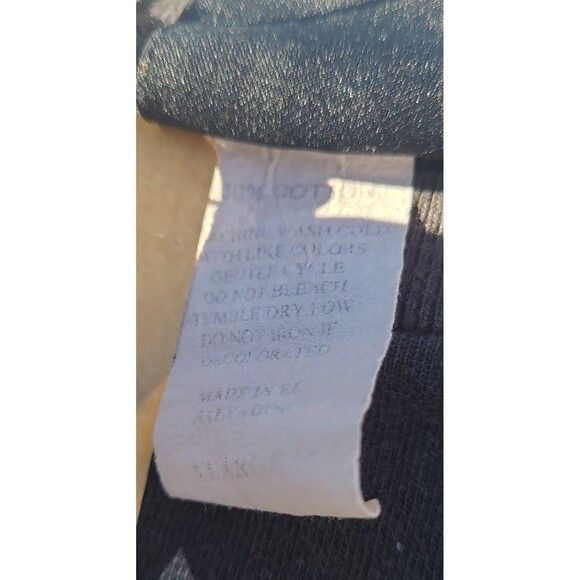 COTTON
MACHINE WASH COLD
WITH LIKE COLORS
GENTLE CYCLE
DO NOT BLEACH
TUMBLE DRY LOW
DO NOT IRON IF
DECORATED
MADE IN EL
SALVADOR